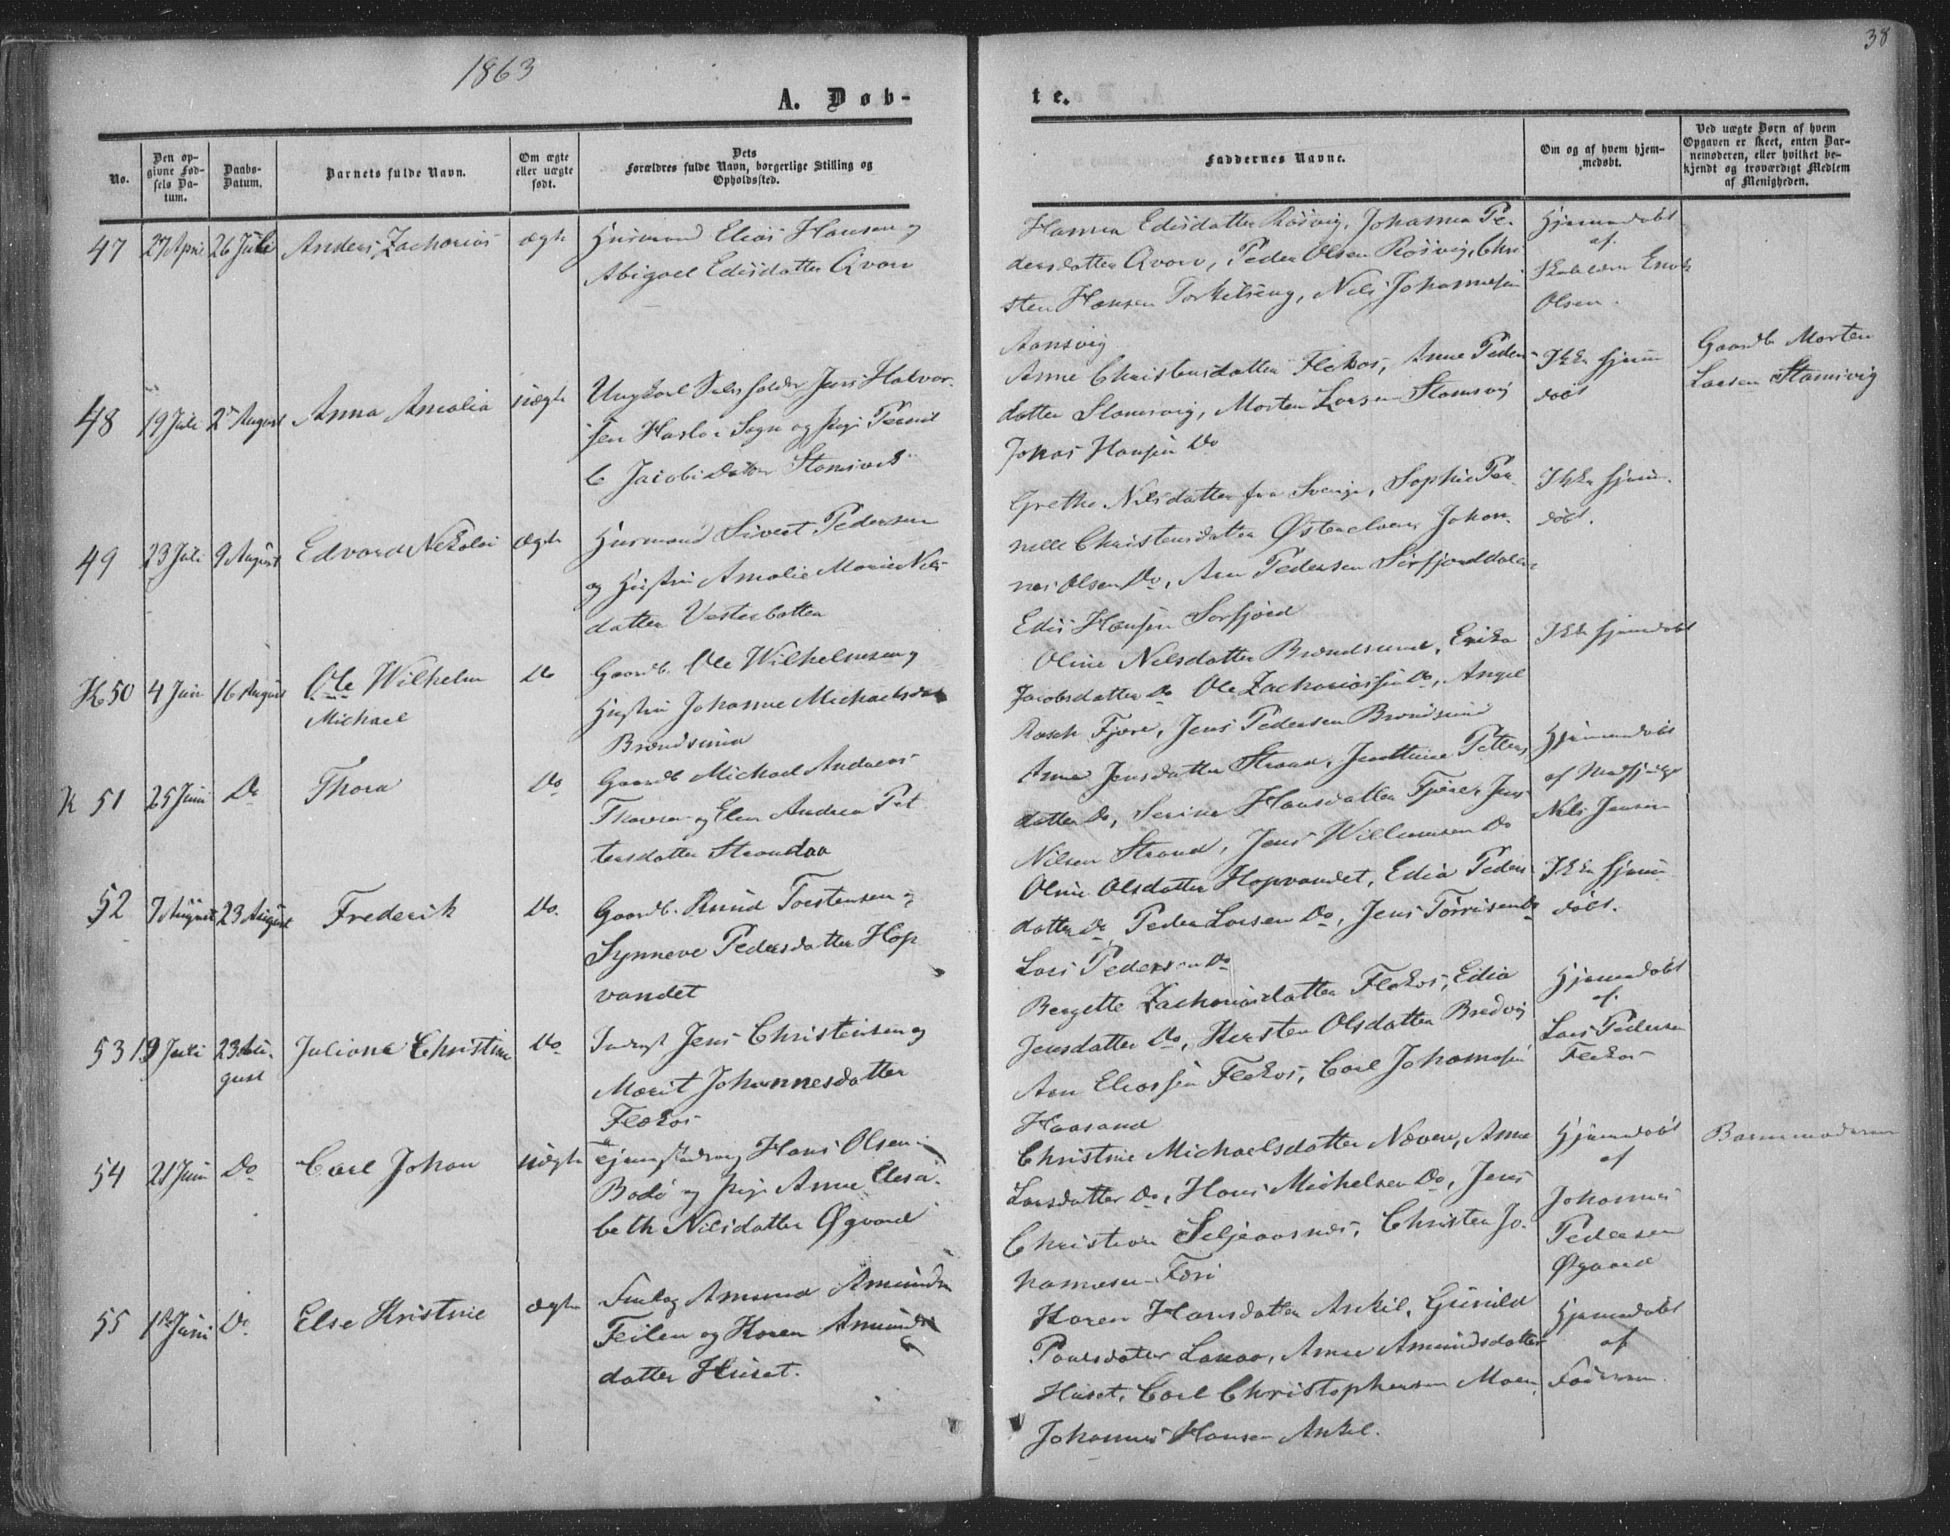 1863
38
A. Døb-
te.
No.
Den op-
givne Fød-
sels Da-
tum.
Daabs-
Datum.
Barnets fulde Navn.
Om ægte
eller uægte
født.
Dets
Forældres fulde Navn, borgerlige Stilling og
Opholdssted.
Faddernes Navne.
Om og af hvem hjem-
medøbt.
Ved uægte Børn af hvem
Opgaven er skeet, enten Bar-
nemoderen, eller hvilket be-
kjendt og troværdigt Medlem
af Menigheden.
47 27 April 26 Juli Anders Zacharias ægte Husmand Elias Hansen og
Abigael Edisdatter Qvarv
Hanna Edisdatter Rösvig, Johanna Pe-
dersdatter Qvarv, Peder Olsen Rösvig, Chri
sten Hansen Torkilseng, Nils Johannesen
Aansvig
Hjemmedøbt
af
Skolelærer Enok
Olsen.
48 19 Juli 2 August Anna Amalia uægte Ungkarl Jens Halvor-
sen Haslo i Sogn og Pige Pernil
le Jacobsdatter Stamsvik
Anne Christensdatter Flekos, Anne Peders-
datter Stamsvig, Morten Larsen Stamsvig
Johas Hansen Do
Ikke hjem
døbt
Gaardb. Morten
Larsen Stamsvig
49 23 Juli 9 August Edvard Nikolai ægte Husmand Sivert Pedersen
og Hustru Amalie Marie Nils
datter Vesterbotten
Grethe Nilsdatter fra Sverige, Sophie Per-
nelle Christensdatter Østerelven, Johan-
nes Olsen Do, Arn Pedersen Sörfjorddalen
Edis Hansen Sorfjord
Ikke hjem-
døbt.
K 50 4 Juni 16 August Ole Wilhelm
Michael
Do Gaardb. Ole Wilhelmsen og
Hustru Johanne Michaelsdat
Brændsund
Oline Nilsdatter Brændsund, Erika
Jacobsdatter Do Ole Zachariassen Do, Angel
Rasch Fjære, Jens Pedersen Brændsund
Ikke hjemdøbt
K 51 25 Juni Do Thora Do Gaardb. Michael Andreas
Thoresen og Elen Andrea Pet
tersdatter Strandaa
Anne Jensdatter Strand, Petters
datter Do, Serina Hansdatter Fjære, Jens
Nilsen Strand, Jens Willumsen Do
Hjemmedøbt
af
Nils Jensen
52 7 August 23 August Frederik Do. Gaardb. Knud Torstensen og
Synneve Pedersdatter Hop
vandet
Oline Olsdatter Hopvandet, Edia Peders
datter Do, Peder Larsen Do, Jens Törrisen Do
Lars Pedersen Do
Ikke hjem
døbt.
53 19 Juli 23 Au-
gust
Juliana Christine Do Inderst Jens Christensen og
Marit Johannesdatter
Flekos
Bergette Zachariasdatter Flekos, Edia
Jensdatter Do, Kersten Olsdatter Bredvig
Arn Eliassen Flekos, Carl Johannesen
Haasand
Hjemmedøbt
af
Lars Pedersen
Flekos
54 21 Juni Do Carl Johan uægte Hans Olsen
Bodö og Pige Anne Elisa-
beth Nilsdatter Øgaard
Christine Michaelsdatter Nævern, Anne
Larsdatter Do, Hans Michelsen Do, Jens
Christian Seljeaasnes, Christen Jo-
hannesen Fæn
Hjemmedøbt
af
Johannes
Pedersen
Øgaard
Barnemoderen
55 1st Juni Do Else Kristine ægte Amund Amundsen
Feilen og Karen Amunds
datter Huset.
Karen Hansdatter Ankil, Gunild
Poulsdatter Lakaa, Anne Amundsdatter
Huset, Carl Christophersen Moen,
Johannes Hansen Ankil.
Hjemmedøbt
af
Faderen